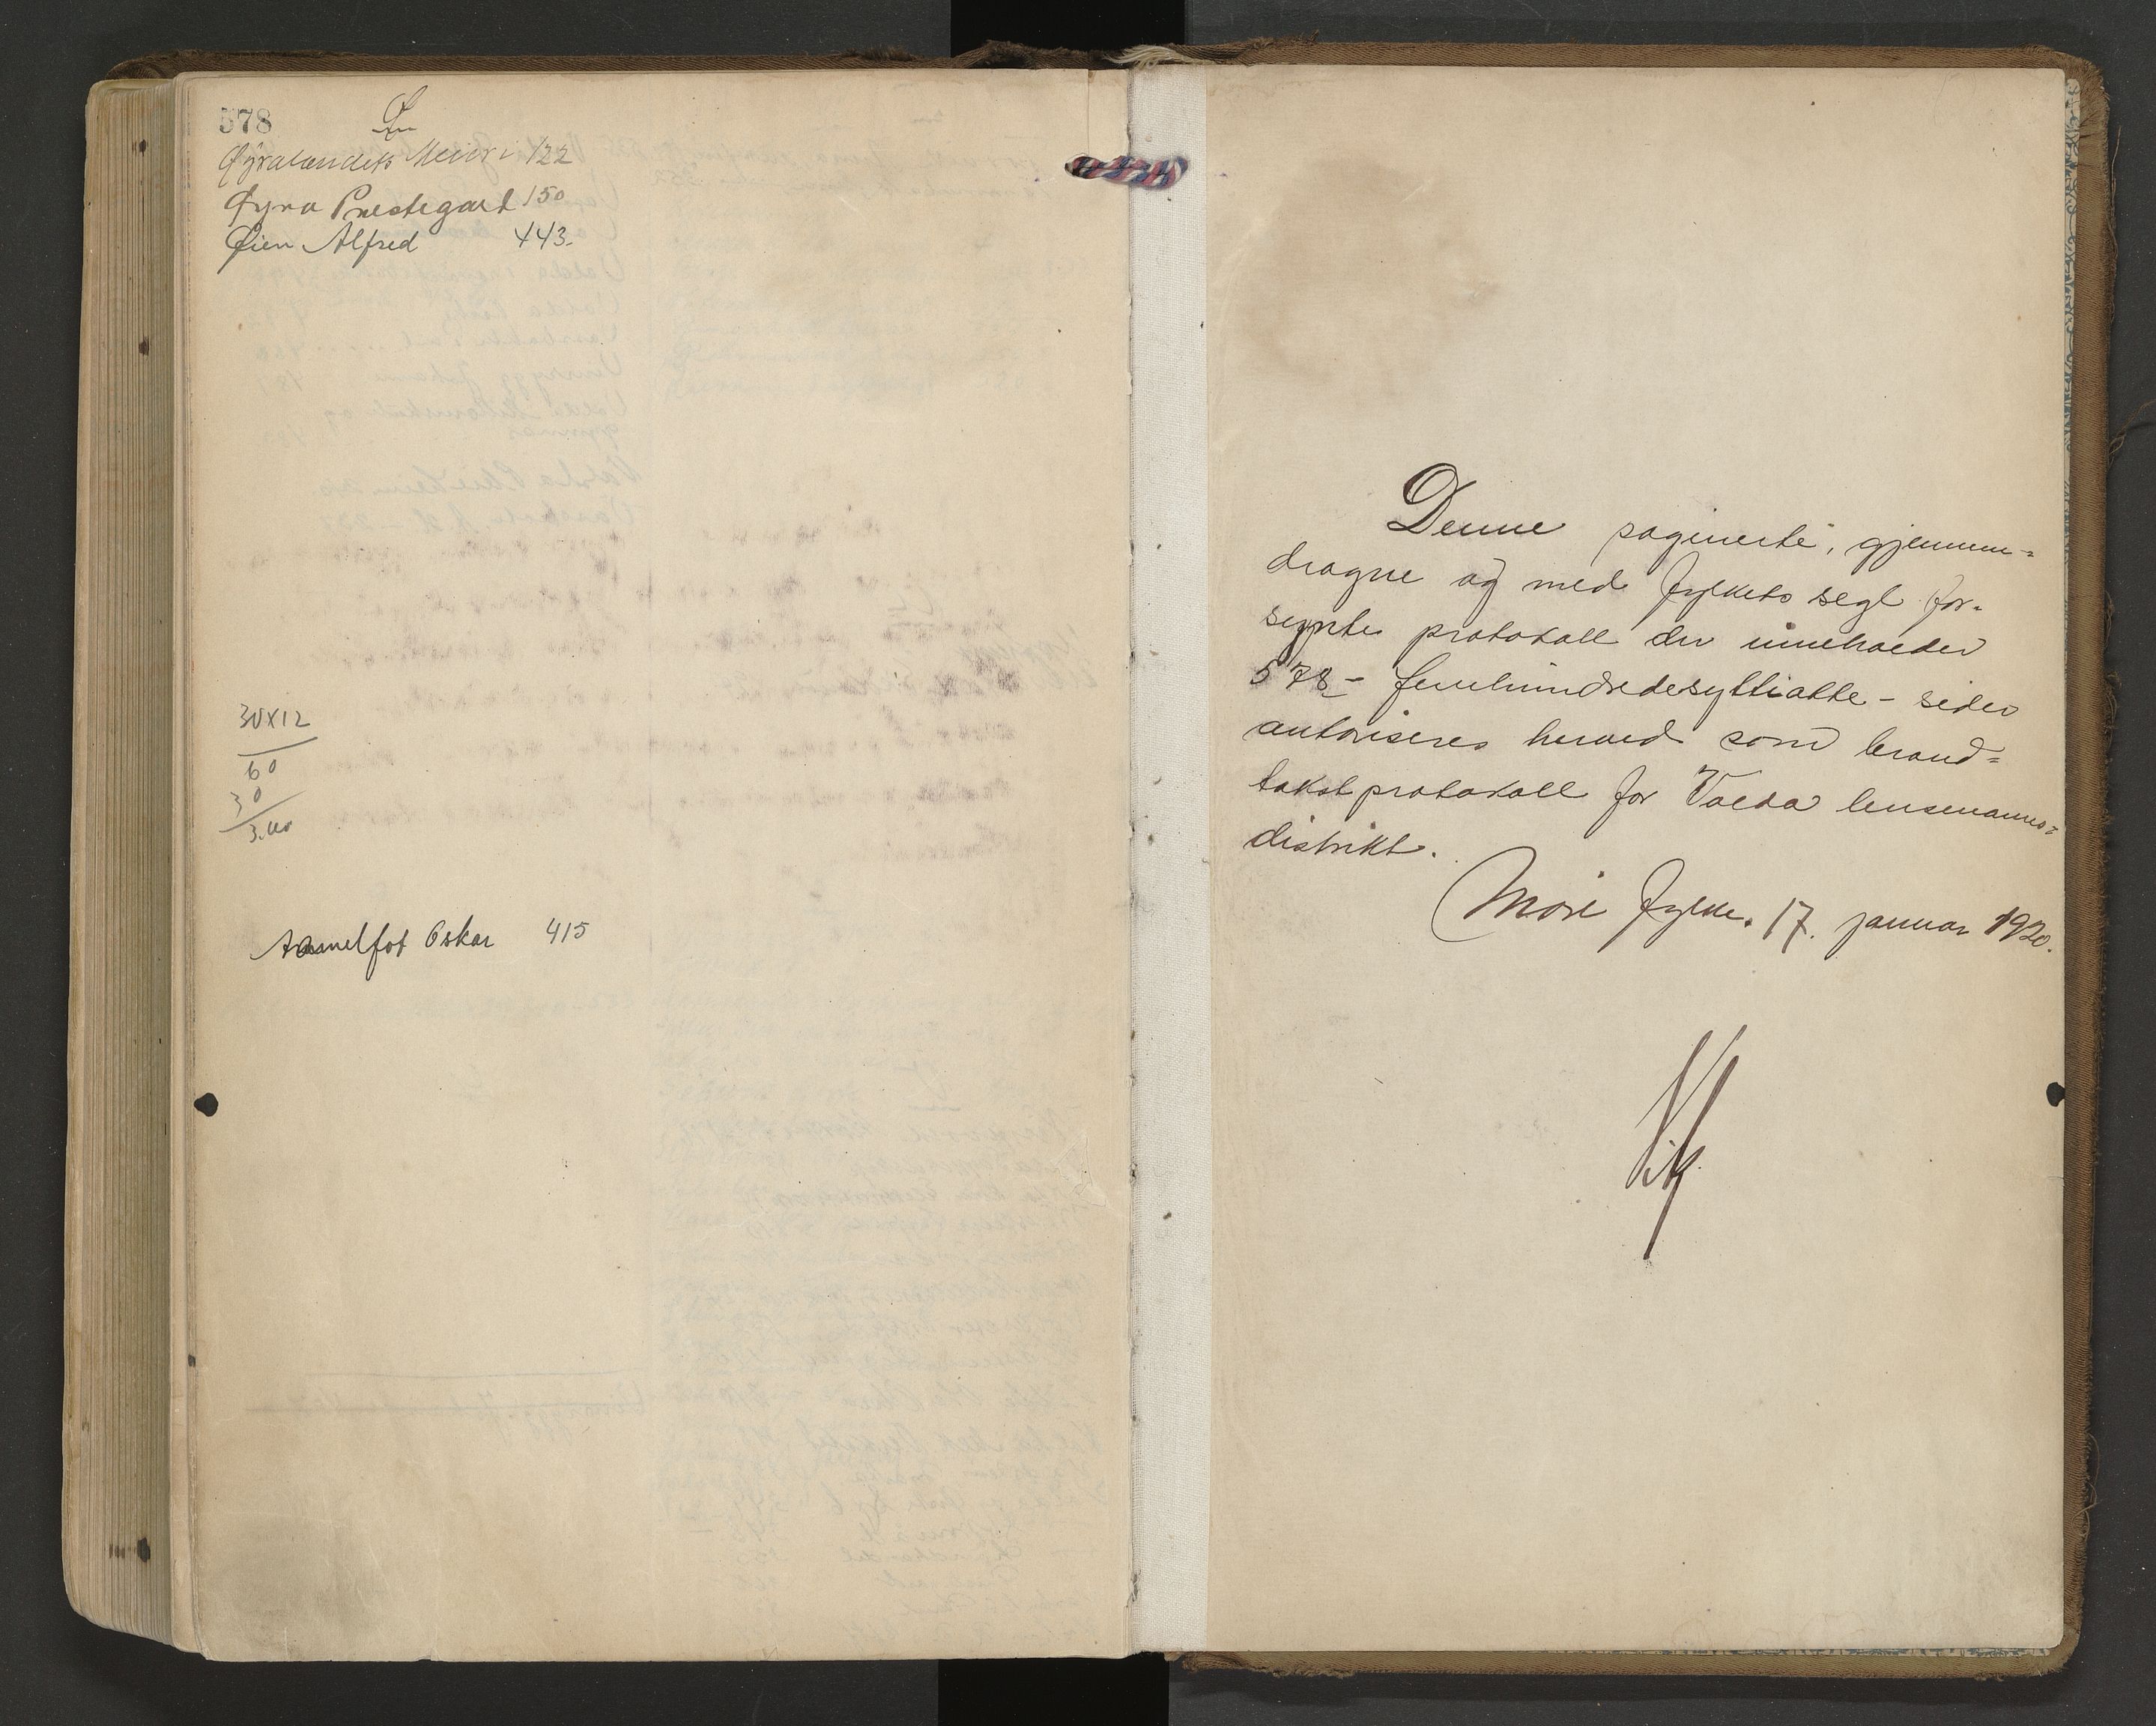 578
Ø
Øyralandets Meieri 122
Øyra Prestegard 150
Øien Alfred 443.
30X12
60
30
3.60
Aamelfot Oskar 415
Denne paginerte, gjennem=
dragne og med fylkets segl for=
synte protokoll der inneholder
578 - femhundredesyttiatte - sider
autoriseres herved som brand=
takstprotokoll for Volda lensmanns=
distrikt.
Møre fylke. 17. januar 1920.